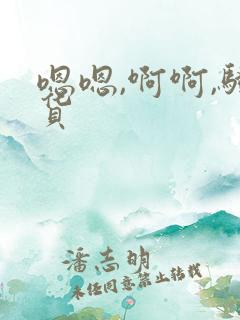 嗯嗯,啊啊,
潘志明
未经同意禁止转载